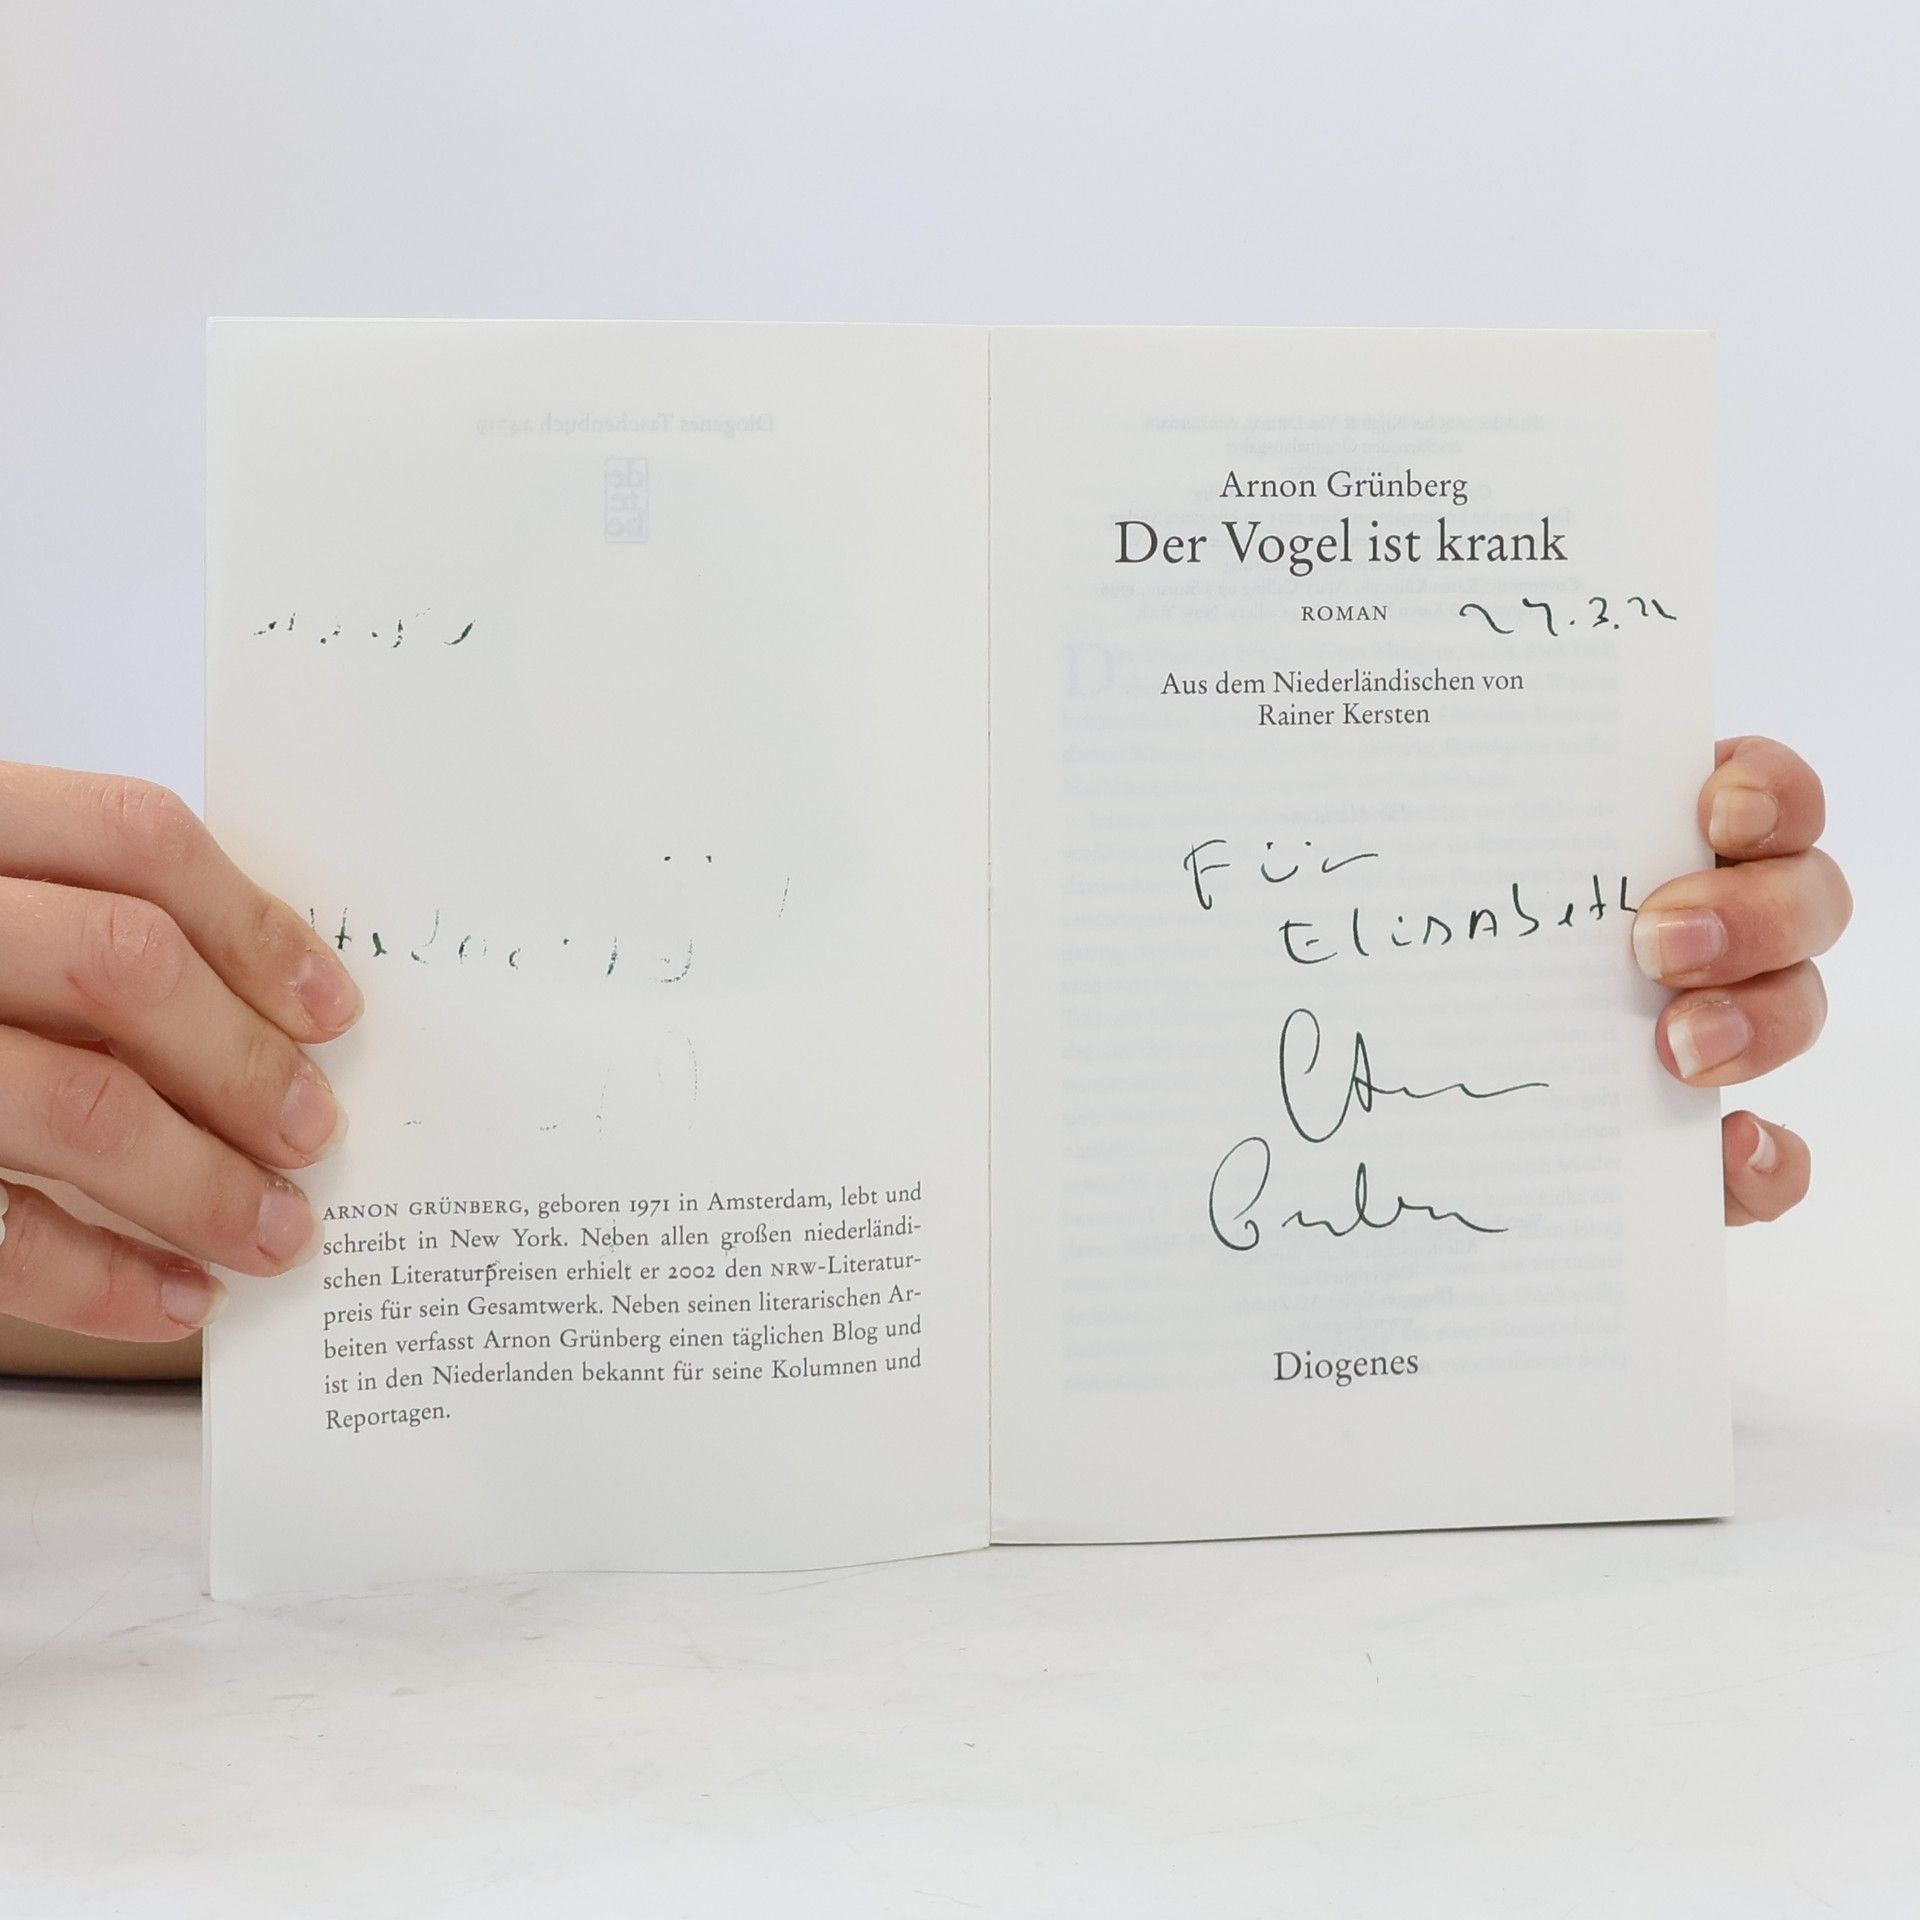 ARNON GRÜNBERG, geboren 1971 in Amsterdam, lebt und
schreibt in New York. Neben allen großen niederländi-
schen Literaturpreisen erhielt er 2002 den NRW-Literatur-
preis für sein Gesamtwerk. Neben seinen literarischen Ar-
beiten verfasst Arnon Grünberg einen täglichen Blog und
ist in den Niederlanden bekannt für seine Kolumnen und
Reportagen.
Arnon Grünberg
Der Vogel ist krank
ROMAN
Aus dem Niederländischen von
Rainer Kersten
Für
Elisabeth
Diogenes